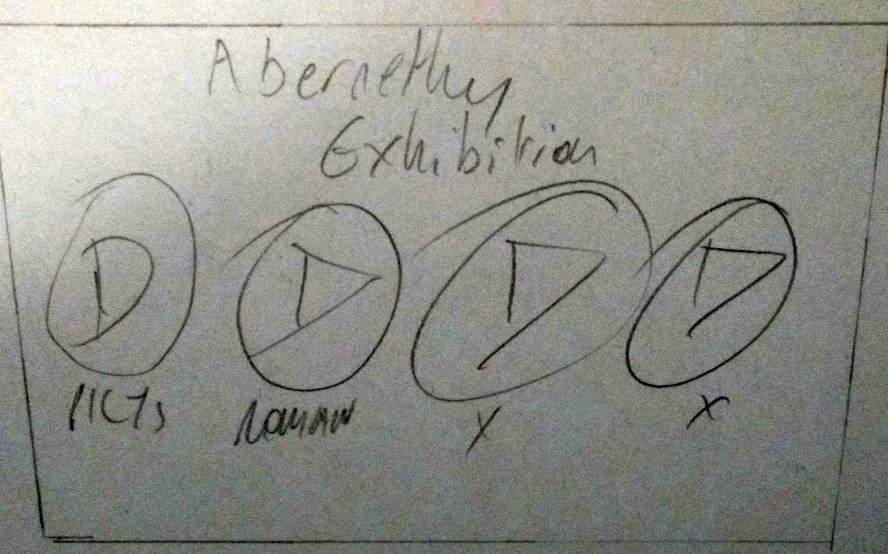 Abernethy
Exhibition
PICTs ROMAN X X